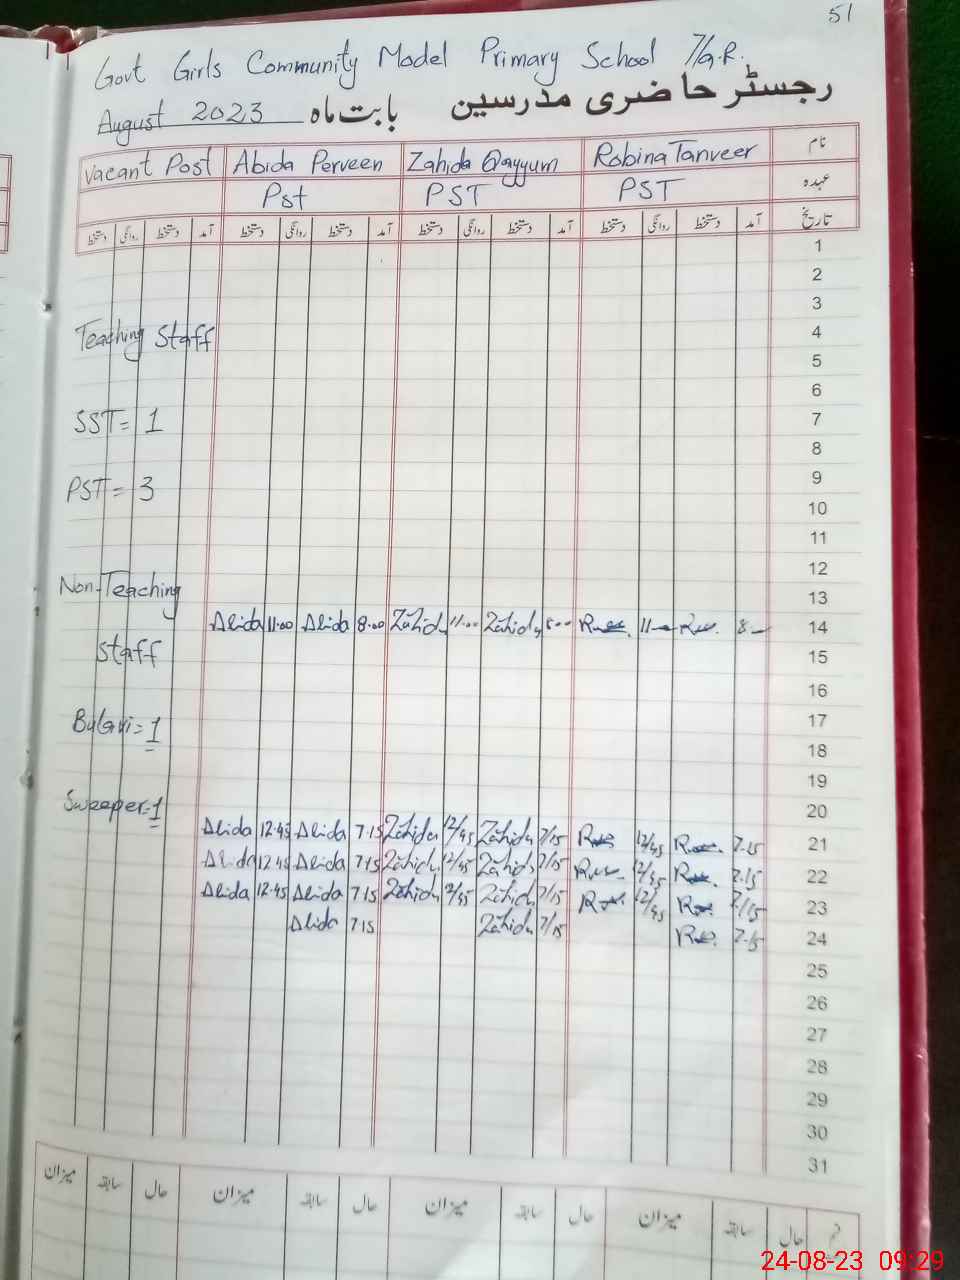 51
Govt Girls Community Model Primary School 7/G.R.
رجسٹر حاضری مدرسین بابت ماہ August 2023
نام Robina Tanveer Zahida Qayyum Abida Perveen Vacant Post
عہدہ PST PST Pst
تاریخ آمد دستخط روانگی دستخط آمد دستخط روانگی دستخط آمد دستخط روانگی دستخط آمد دستخط روانگی دستخط
1
2
3
Teaching Staff 4
5
6
SST = 1 7
8
PST = 3 9
10
11
12
Non-Teaching 13
Abida 11.00 Abida 8.00 Zahida 11.00 Zahida 8.00 11 8 14
Staff 15
16
17
18
19
Sweeper-1 20
Abida 12.45 Abida 7.15 Zahida 12/45 Zahida 7/15 12/45 7.15 21
Abida 12.45 Abida 7.15 Zahida 12/45 Zahida 7/15 12/45 7.15 22
Abida 12.45 Abida 7.15 Zahida 12/45 Zahida 7/15 12/45 7/15 23
Abida 7.15 Zahida 7/15 7.15 24
25
26
27
28
29
30
31
حال سابقہ میزان حال سابقہ میزان حال سابقہ میزان حال سابقہ میزان
24-08-23 09:29